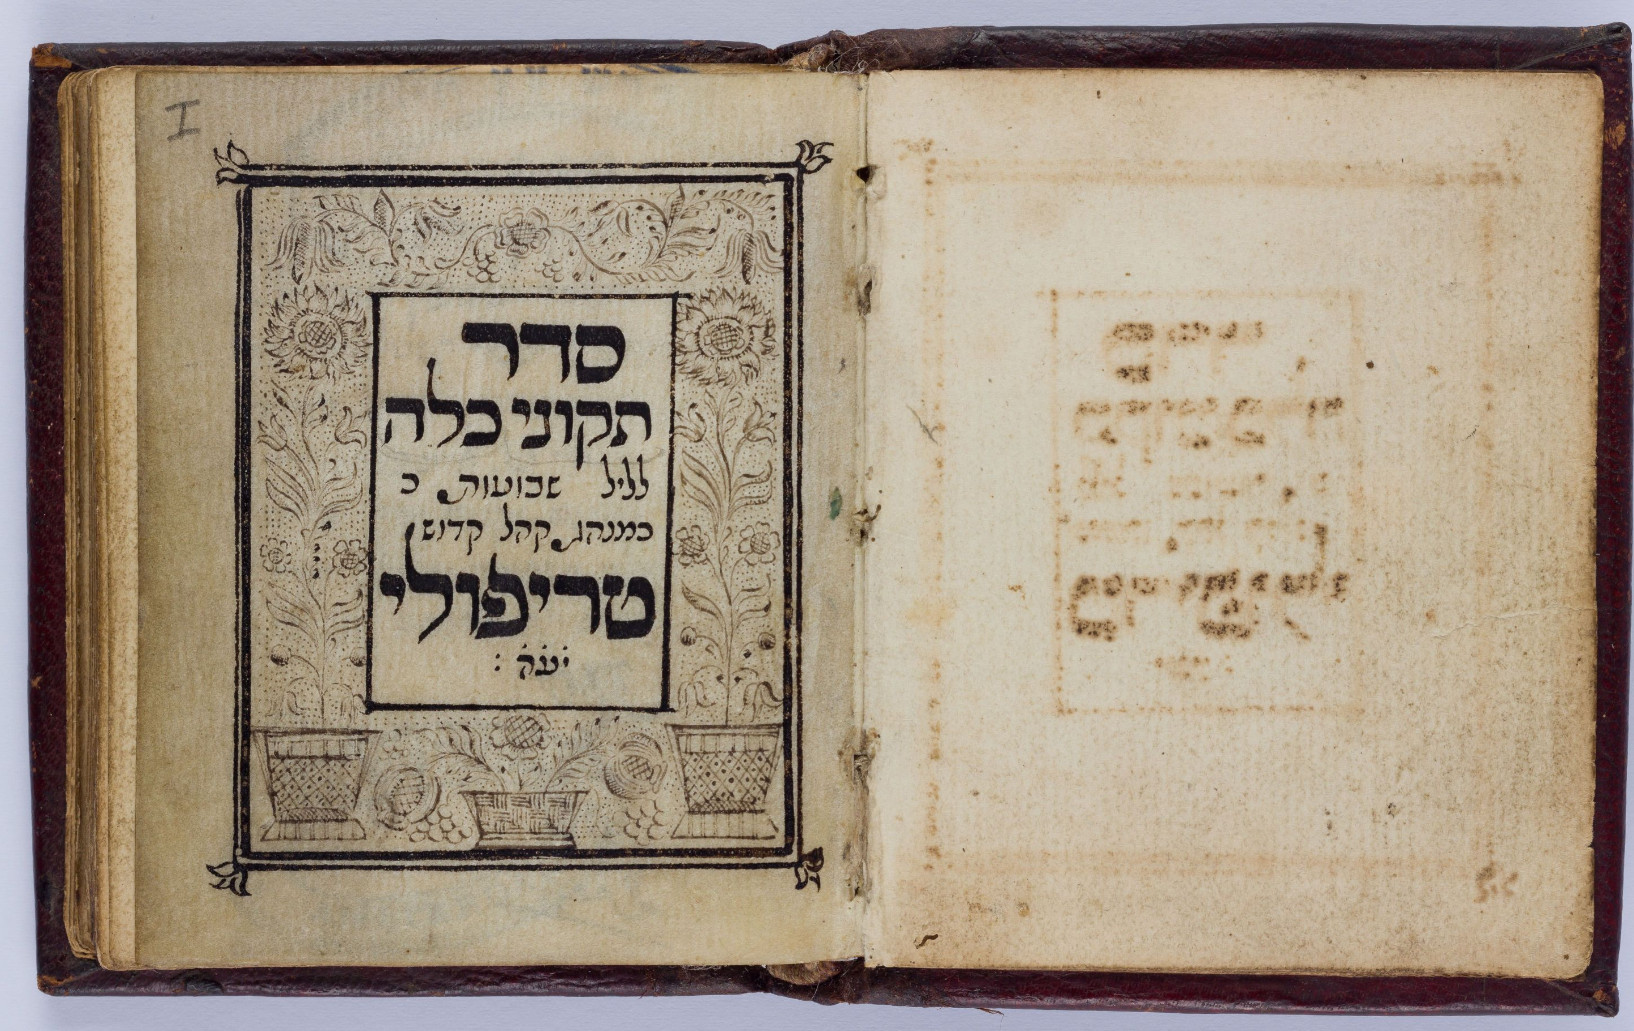 I
סדר
תקוני כלה
לליל שבועות כ
כמנהג קהל קדוש
טריפולי
יע״ק :